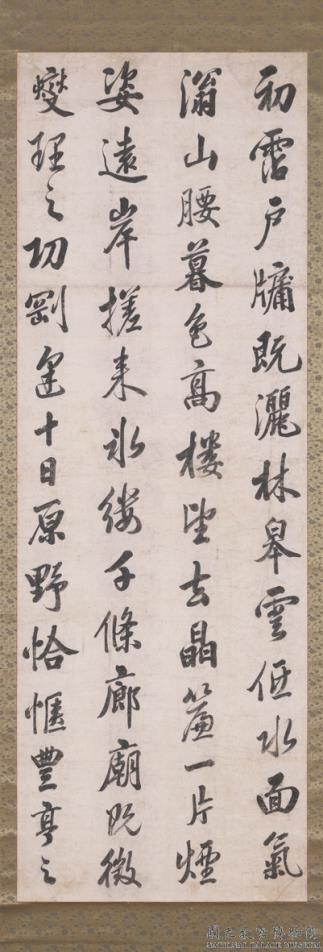 初霑戶牖既灑林皋雲低水面氣
滃山腰暮色高樓望去晶簾一片煙
姿遠岸搓來冰縷千條廊廟既徵
燮理之功剛逢十日原野恰愜豐亨之
國立故宮博物院
NATIONAL PALACE MUSEUM